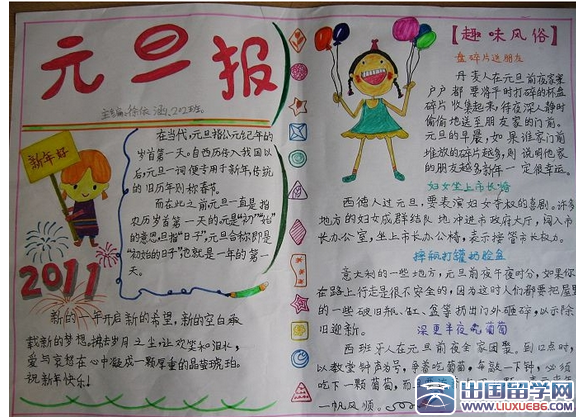 元旦报
主编:徐依涵 202班
新年好
在当代,元旦指公元纪年的
岁首第一天。自西历传入我国以
后,元旦一词便专用于新年,传统
的旧历年则称春节。
而在此之前元旦一直是指
农历岁首第一天的。元是"初""始"
的意思,旦指"日子",元旦合称即是
"初始的日子"也就是一年的第一
天。
2011
新的一年开启新的希望,新的空白承
载新的梦想。拂去岁月之尘,让欢笑和泪水,
爱与哀愁在心中凝成一颗厚重的晶莹琥珀。
祝新年快乐!
【趣味风俗】
盘碎片送朋友
丹麦人在元旦前夜家家
户户都要将平时打碎的杯盘
碎片收集起来,待夜深人静时
偷偷地送至朋友家的门前。
元旦的早晨,如果谁家门前
堆放的碎片越多,则说明他家
的朋友越多新年一定很幸运。
妇女坐上市长椅
西德人过元旦,要表演妇女夺权的喜剧。许多
地方的妇女成群结队地冲进市政府大厅,闯入市
长办公室,坐上市长办公椅,表示接管市长权力。
摔瓶打罐扔脸盆
意大利的一些地方,元旦前夜午夜时分,如果你
在路上行走是很不安全的,因为这时人们都要把屋里
的一些破旧瓶、缸、盆等扔出门外砸碎,以示除
旧迎新。
深更半夜吃葡萄
西班牙人在元旦前夜全家团聚,到12点时,
以教堂钟声为号,争着吃葡萄,每敲一下钟,必须
吃下一颗葡萄,而
表示来年
一帆风顺。
出国留学网
WWW.LIUXUE86.COM